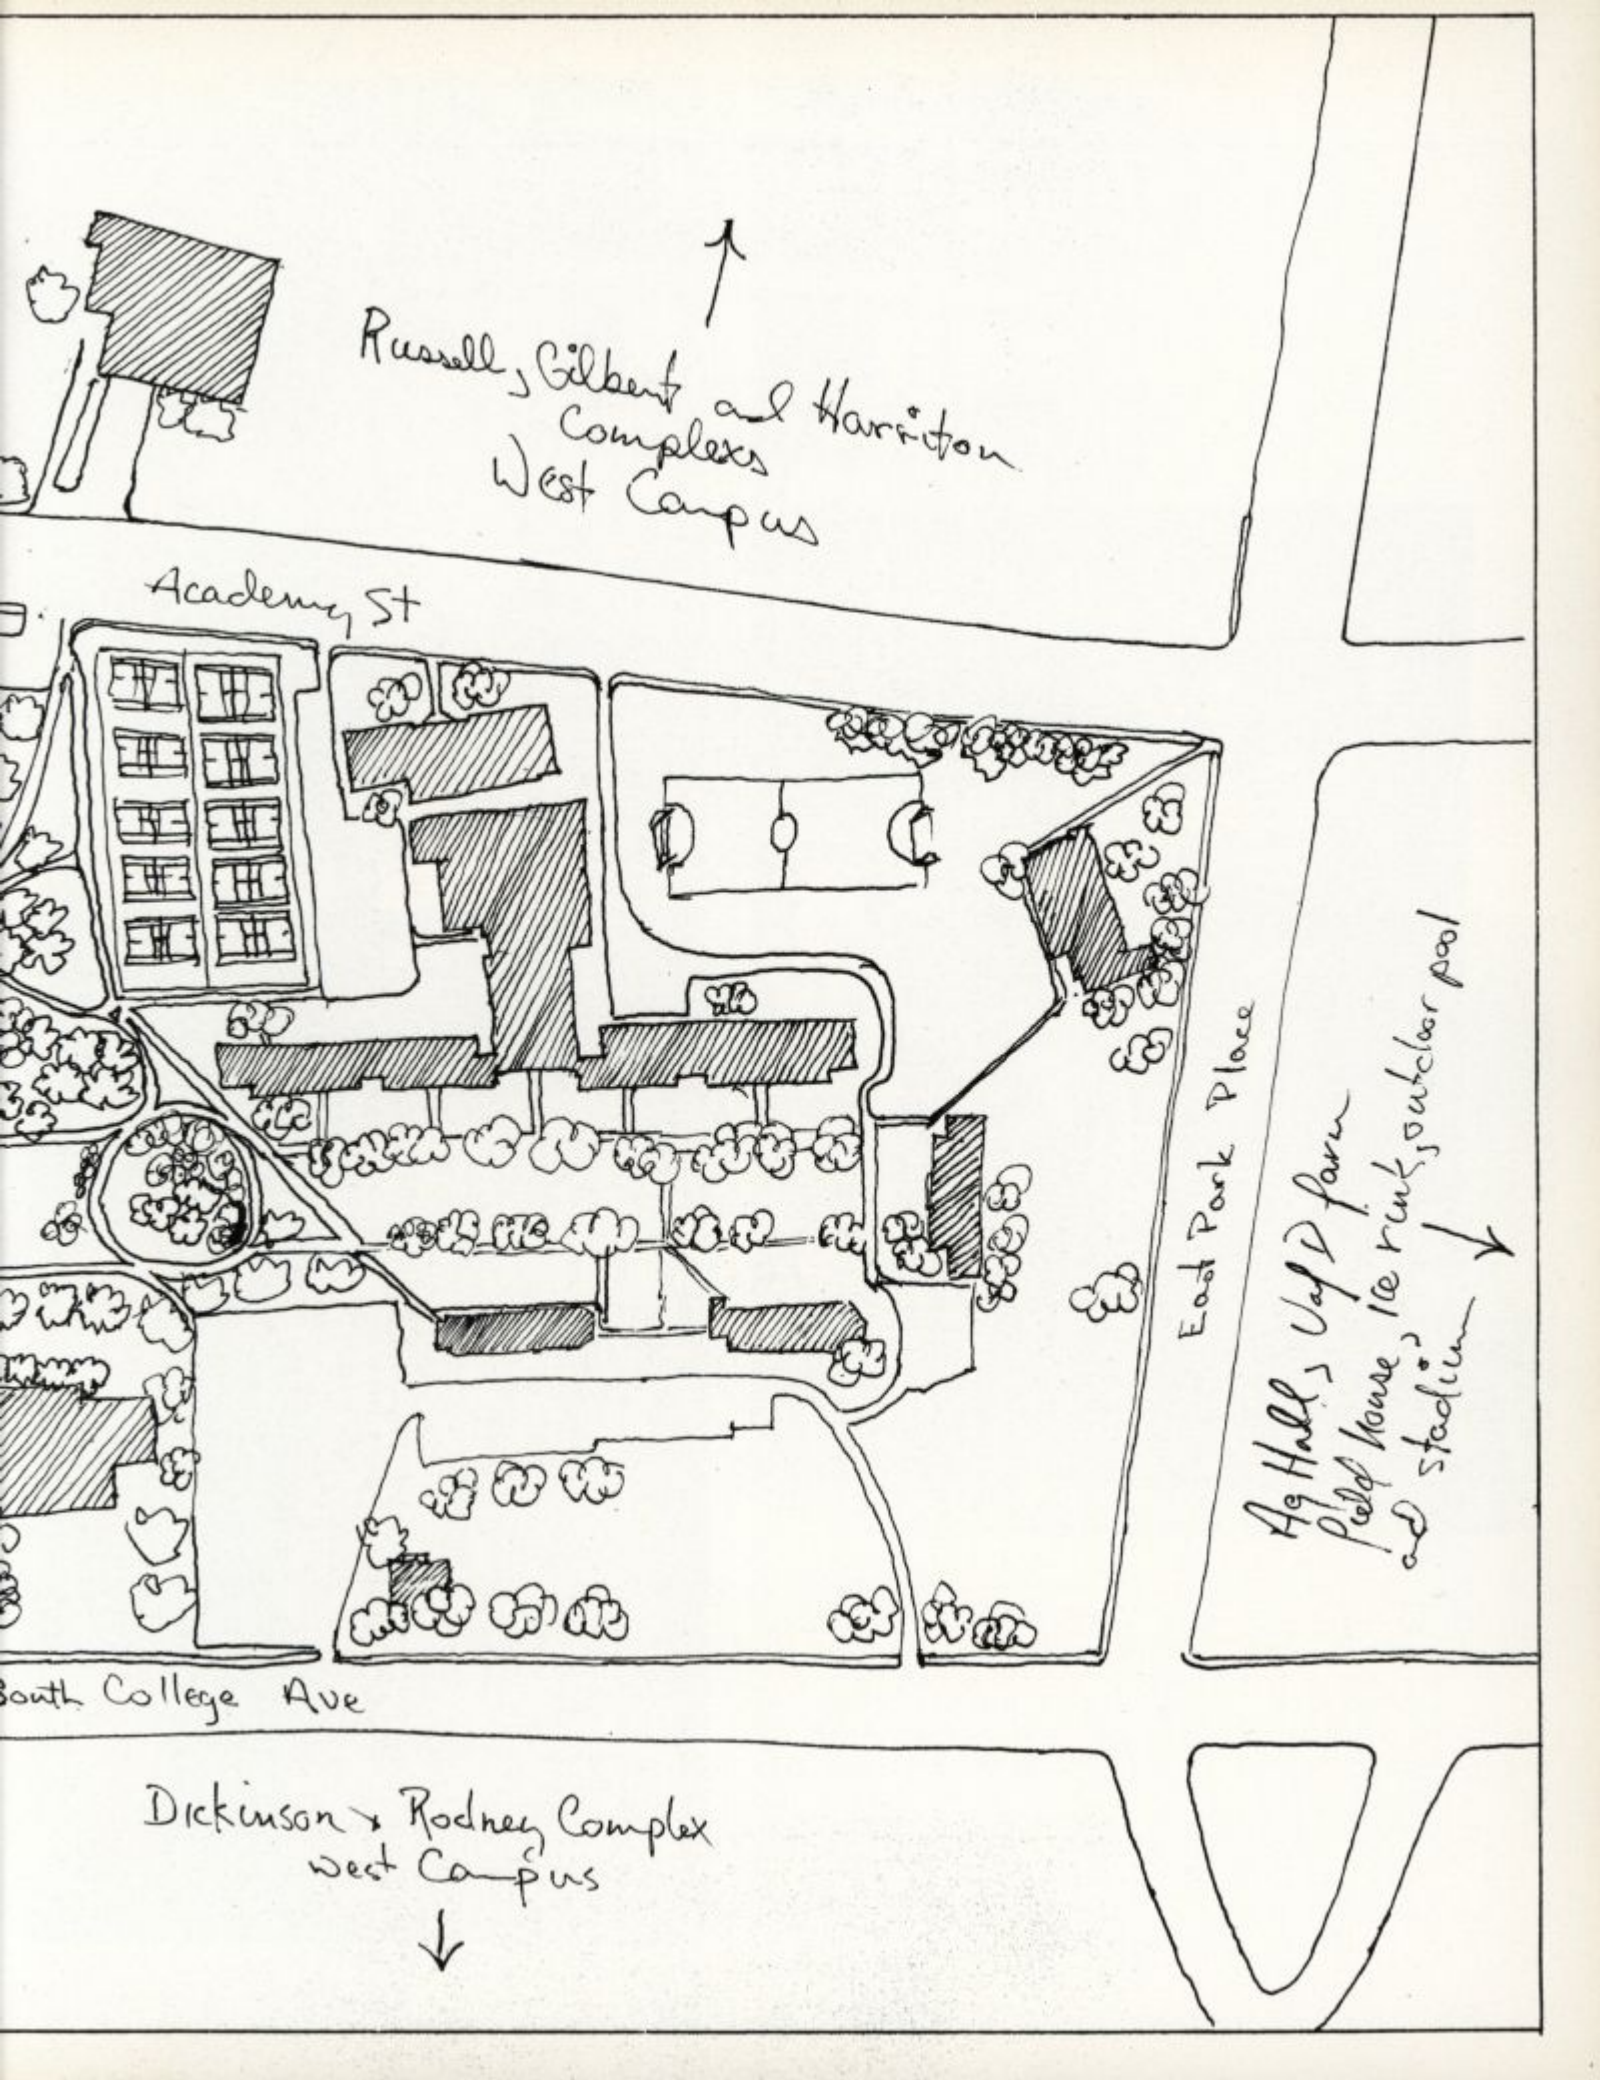 Russell, Gilbert and Harriton
Complexs
West Campus
Academy St
East Park Place
Ag Hall, U of D farm
field house, ice rink, outdoor pool
and stadium
South College Ave
Dickinson & Rodney Complex
West Campus